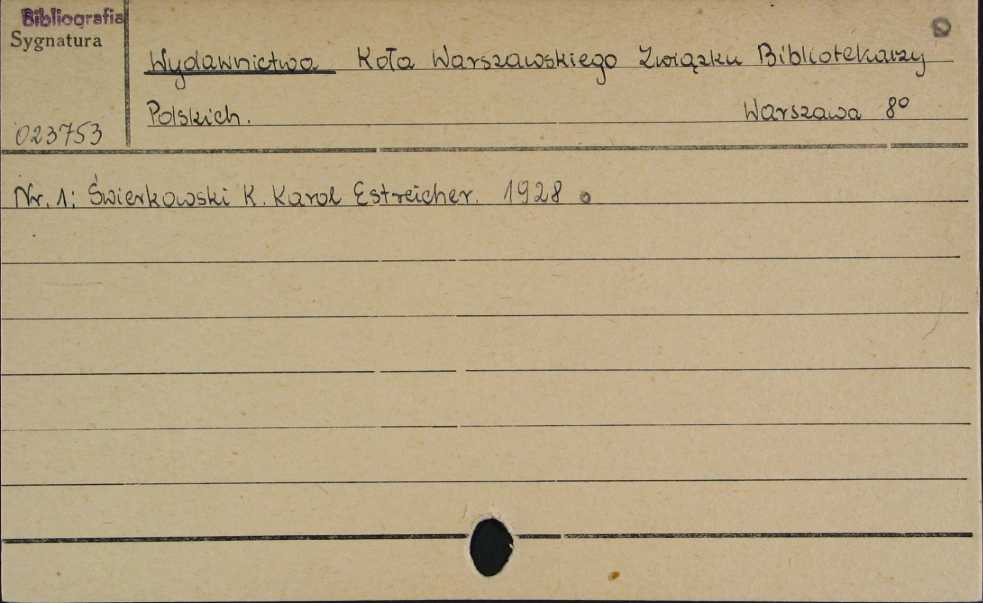 Bibliografia
Sygnatura
Wydawnictwa Koła Warszawskiego Związku Bibliotekarzy
Polskich. Warszawa 8º
023753
Nr. 1: Świerkowski K. Karol Estreicher. 1928